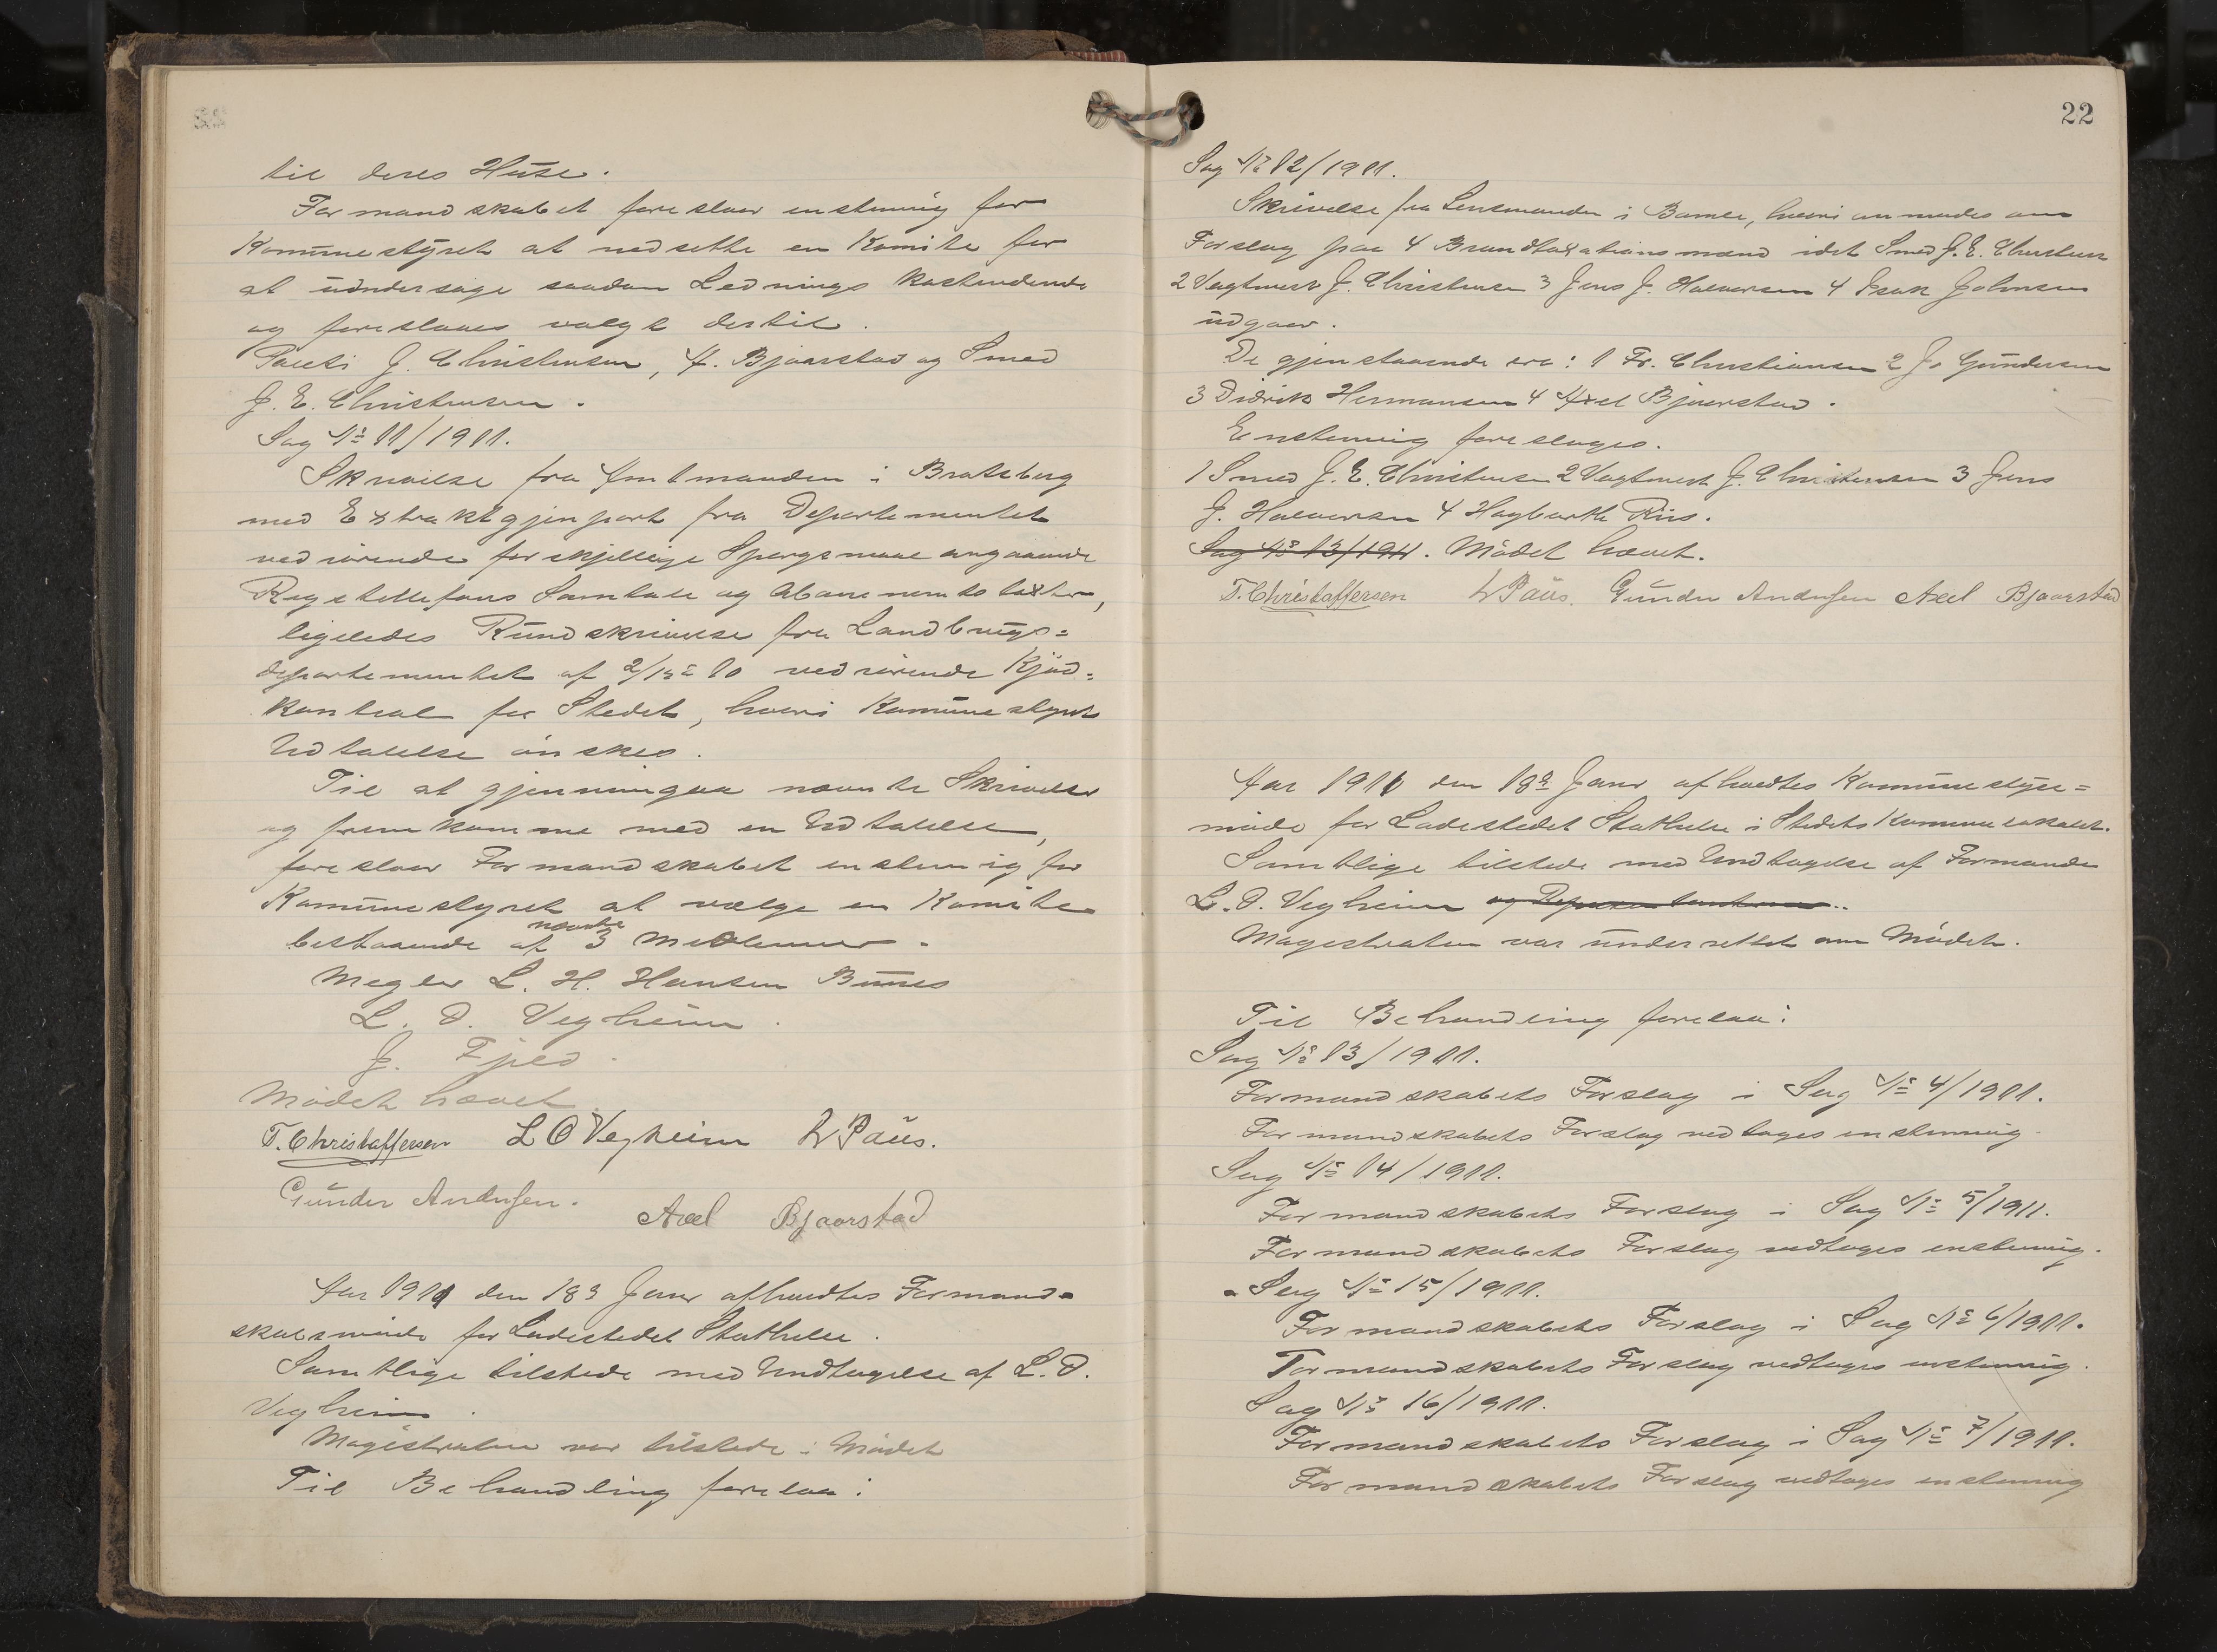 til deres Huse.
Formandskabet foreslaar enstemig for
Komunestyret at nedsette en Komite for
at undersøge saadan Lednings kostendende
og foreslaaes valgt dertil.
J. Christensen, A. Bjaarstad og Smed
J. E. Christensen.
Sag No 11/1911.
Skrivelse fra Amtmanden i Bratsberg
med Extraktgjenpart fra Departementet
vedrørende forskjellige Spørgsmaal angaaende
Rigstellefons Samtale og Abonnemtstakster,
ligeledes Rundskrivelse fra Landbrugs=
departementet af 2/12 10 vedrørende Kjød=
kontrol for Stedet, hvori Komunestyrets
Udtalelse ønskes.
Til at gjennemgaa nævnte Skrivelse
og fremkomme med en Udtalelse,
foreslaar Formandskabet enstemig for
Komunestyret at vælge en Komite
bestaaende af nævnte 3 Medlemmer.
Megler L. H. Hansen Bunes
L. O. Vegheim.
J. Fjeld.
Mødet hævet.
T. Christoffersen L O Vegheim L Paus.
Gunder Andersen. Axel Bjaarstad
Aar 1911 den 18de Janr afholdtes Formand=
skabsmøde for Ladestedet Stathelle.
Samtlige tilstede med Undtagelse af L. O.
Vegheim.
Magistraten var tilstede i Mødet
Til Behandling forelaa:
22
Sag No 12/1911.
Skrivelse fra Lensmanden i Bamle, hvori anmodes om
Forslag paa 4 Brandtaxationsmænd idet Smed J. E. Christensen
2 Vagtmest J. Christensen 3 Jens J. Halvorsen 4 Isak Johnsen
udgaar.
De gjenstaaende ere: 1 Fr. Christiansen 2 J. Gundersen
3 Didrik Hermansen 4 Axel Bjaarstad.
Enstemig foreslages.
1 Smed J. E. Christensen 2 Vagtmest J. Christensen 3 Jens
J. Halvorsen 4 Hagbarth Riis.
Sag No 13/1911. Mødet hævet.
T. Christoffersen L Paus. Gunder Andersen Axel Bjaarstad
Aar 1911 den 18de Janr afholdtes Komunestyre=
møde for Ladestedet Stathelle i Stedets Komunelokale.
Samtlige tilstede med Undtagelse af Formanden
L. O. Vegheim og Representanterne
Magistraten var underrettet om Mødet.
Til Behandling forelaa:
Sag No 13/1911.
Formandskabets Forslag i Sag No 4/1911.
Formandskabets Forslag vedtages enstemig.
Sag No 14/1911.
Formandskabets Forslag i Sag No 5/1911.
Formandskabets Forslag vedtoges enstemig.
Sag No 15/1911.
Formandskabets Forslag i Sag No 6/1911.
Formandskabets Forslag vedtoges enstemig.
Sag No 16/1911.
Formandskabets Forslag i Sag No 7/1911.
Formandskabets Forslag vedtoges enstemig